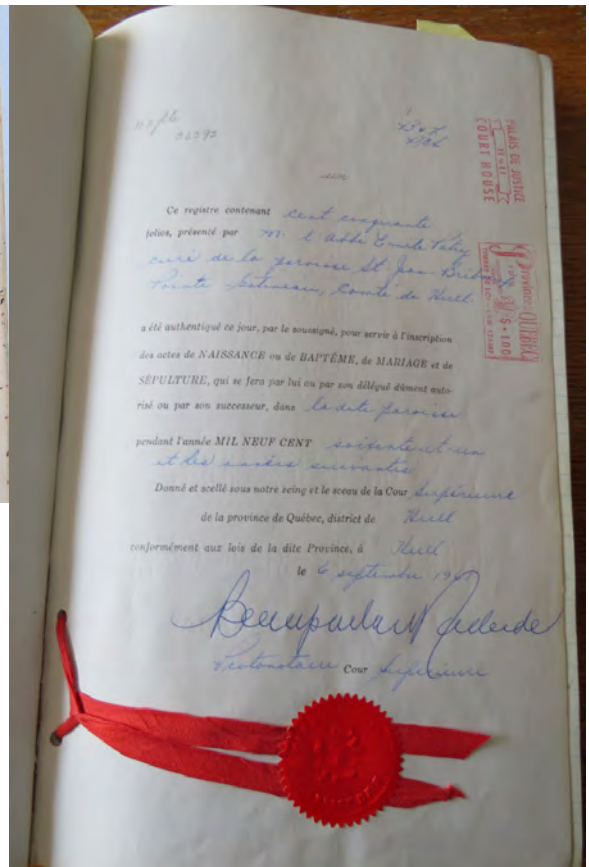 No file
26392
Ce registre contenant cent cinquante
folios, présenté par M. l'abbé Emile
curé de la paroisse St Jean Brébeuf
Pointe Gatineau, Comté de Hull
a été authentiqué ce jour, par le soussigné, pour servir à l'inscription
des actes de NAISSANCE ou de BAPTÊME, de MARIAGE et de
SÉPULTURE, qui se fera par lui ou par son délégué dûment auto-
risé ou par son successeur, dans la dite paroisse
pendant l'année MIL NEUF CENT soixante et un
et les années suivantes
Donné et scellé sous notre seing et le sceau de la Cour Supérieure
de la province de Québec, district de Hull
conformément aux lois de la dite Province, à Hull
le 6 septembre
Protonotaire Cour Supérieure
PALAIS DE JUSTICE
HULL
COURT HOUSE
Province QUÉBEC
$1.00